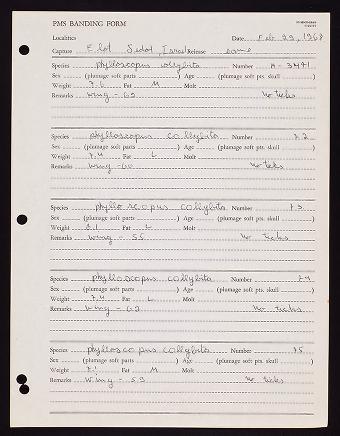 PMS BANDING FORM
Localities Date Feb 29, 1968
Capture Elot Sedot, Israel Release same
Species phylloscopus collybita Number A-3471
Sex (plumage soft parts ) Age (plumage soft pts. skull )
Weight 7.6 Fat M Molt
Remarks wing - 62 No ticks
Species phylloscopus collybita Number 72
Sex (plumage soft parts ) Age (plumage soft pts. skull )
Weight 7.4 Fat L Molt
Remarks wing - 60 No ticks
Species phylloscopus collybita Number 73
Sex (plumage soft parts ) Age (plumage soft pts. skull )
Weight Fat L Molt
Remarks wing - 55 No ticks
Species phylloscopus collybita Number 74
Sex (plumage soft parts ) Age (plumage soft pts. skull )
Weight 7.4 Fat L Molt
Remarks wing - 62 No ticks
Species phylloscopus collybita Number 75
Sex (plumage soft parts ) Age (plumage soft pts. skull )
Weight Fat M Molt
Remarks wing - 59 No ticks